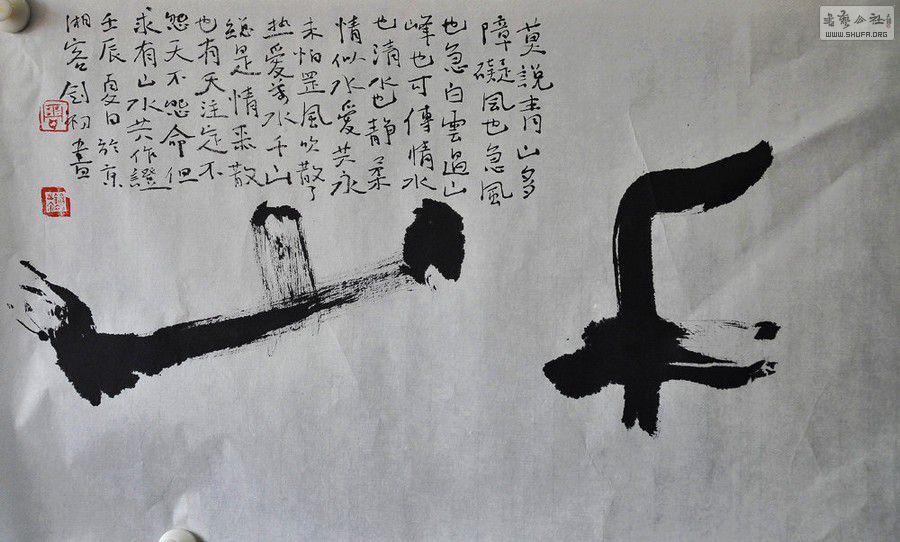 千山
莫說青山多
障礙風也急風
也急白雲過山
峰也可傳情水
也清水也靜柔
情似水愛共永
未怕罡風吹散了
热愛萬水千山
總是情聚散
也有天注定不
怨天不怨命但
求有山水共作證
壬辰夏日於京
湘客劍初畫
书艺公社
WWW.SHUFA.ORG